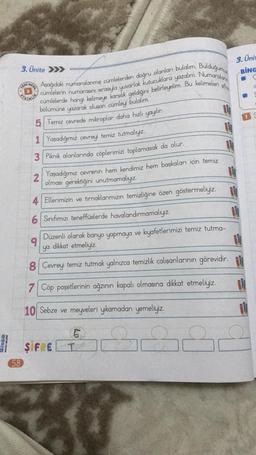 3. Ünite >>>
Aşağıdaki numaralanmış cümlelerden doğru olanları bulalım. Bulduğumuz
cümlelerin numarasını sırasıyla yuvarlak kutucuklara yazalım. Numaraların
cümlelerde hangi kelimeye karşılık geldiğini belirleyelim. Bu kelimeleri şifre
bölümüne yazarak oluşan cümleyi bulalım.
5 Temiz çevrede mikroplar daha hızlı yayılır.
1 Yaşadığımız çevreyi temiz tutmalıyız.
3 Piknik alanlarında çöplerimizi toplamasak da olur.
2 Yaşadığımız çevrenin hem kendimiz hem başkaları için temiz
olması gerektiğini unutmamalıyız.
4 Ellerimizin ve tırnaklarımızın temizliğine özen göstermeliyiz.
6 Sınıfımızı teneffüslerde havalandırmamalıyız.
9 Düzenli olarak banyo yapmaya ve kıyafetlerimizi temiz tutma-
ya dikkat etmeliyiz.
8 Çevreyi temiz tutmak yalnızca temizlik çalışanlarının görevidir.
7 Çöp poşetlerinin ağzının kapalı olmasına dikkat etmeliyiz.
10 Sebze ve meyveleri yıkamadan yemeliyiz.
5
ŞİFRE T
58
3. Ünit
BİNG